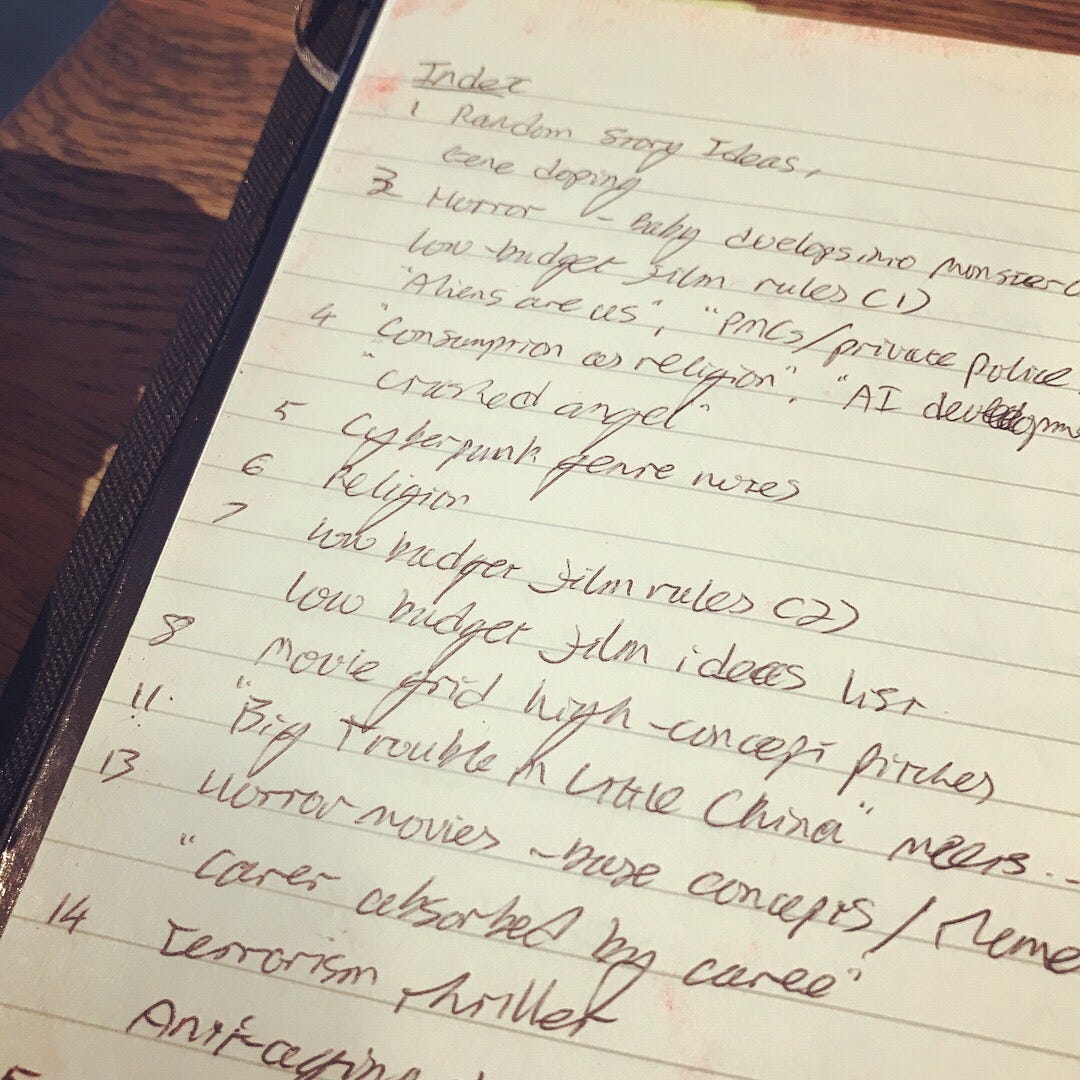 Index
1 Random Story Ideas,
Gene doping
3 Horror - Baby develops into monster
low-budget film rules (1)
"Aliens are us", "PMCs/private police
4 "Consumption as religion", "AI
"Crashed angel"
5 Cyberpunk genre notes
6 Religion
7 low budget film rules (2)
low budget film ideas list
8 Movie grid high-concept pitches
11. "Big Trouble in Little China" meets...
13 Horror movies - base concepts/
"Carer absorbed by caree"
14 Terrorism thriller
Anti-aging